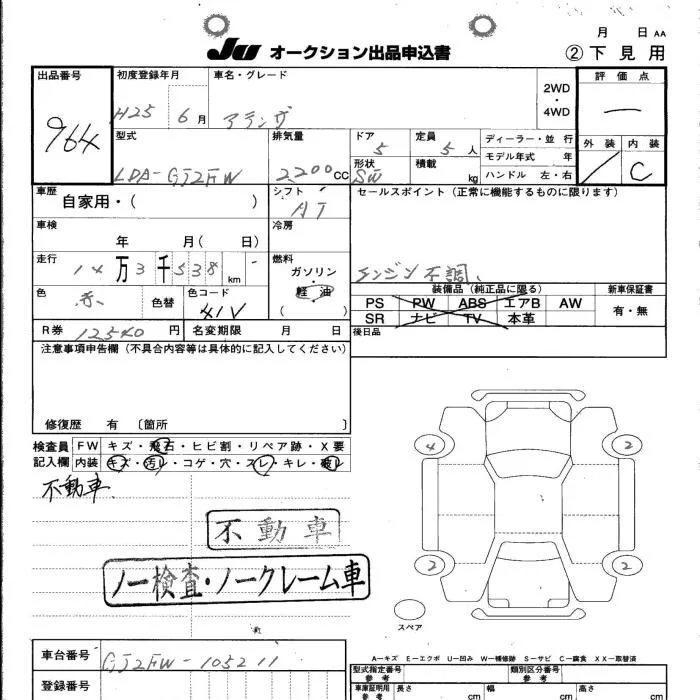 月 日 AA
JU オークション出品申込書 ②下見用
出品番号 初度登録年月 車名・グレード 2WD・4WD 評価点
964 H25 6月 アテンザ —
型式 排気量 ドア 定員 ディーラー・並行 外装 内装
LDA-GJ2FW 2200cc 5 5人 モデル年式 年 / C
形状 積載 ハンドル 左・右
SW kg
車歴 シフト セールスポイント (正常に機能するものに限ります)
自家用・( ) AT
車検 冷房
年 月( 日)
走行 燃料
14万3千538km ガソリン・軽油 エンジン不調、
( )
色 色替 色コード 装備品 (純正品に限る) 新車保証書
赤 41V PS PW ABS エアB AW 有・無
SR ナビ TV 本革
R券 12540円 名変期限 月 日 後日品
注意事項申告欄 (不具合内容等は具体的に記入してください)
修復歴 有 〔箇所 〕
検査員 FW キズ・飛石・ヒビ割・リペア跡・X要
記入欄 内装 キズ・汚レ・コゲ・穴・スレ・キレ・破レ
4 2
不動車
不動車
2 2
ノー検査・ノークレーム車
スペア
A−キズ E−エクボ U−凹み W−補修跡 S−サビ C−腐食 XX−取替済
車台番号 GJ2FW-105211
型式指定番号 参考 類別区分番号 参考
登録番号 車庫証明用 参考 長さ cm 幅 cm 高さ cm